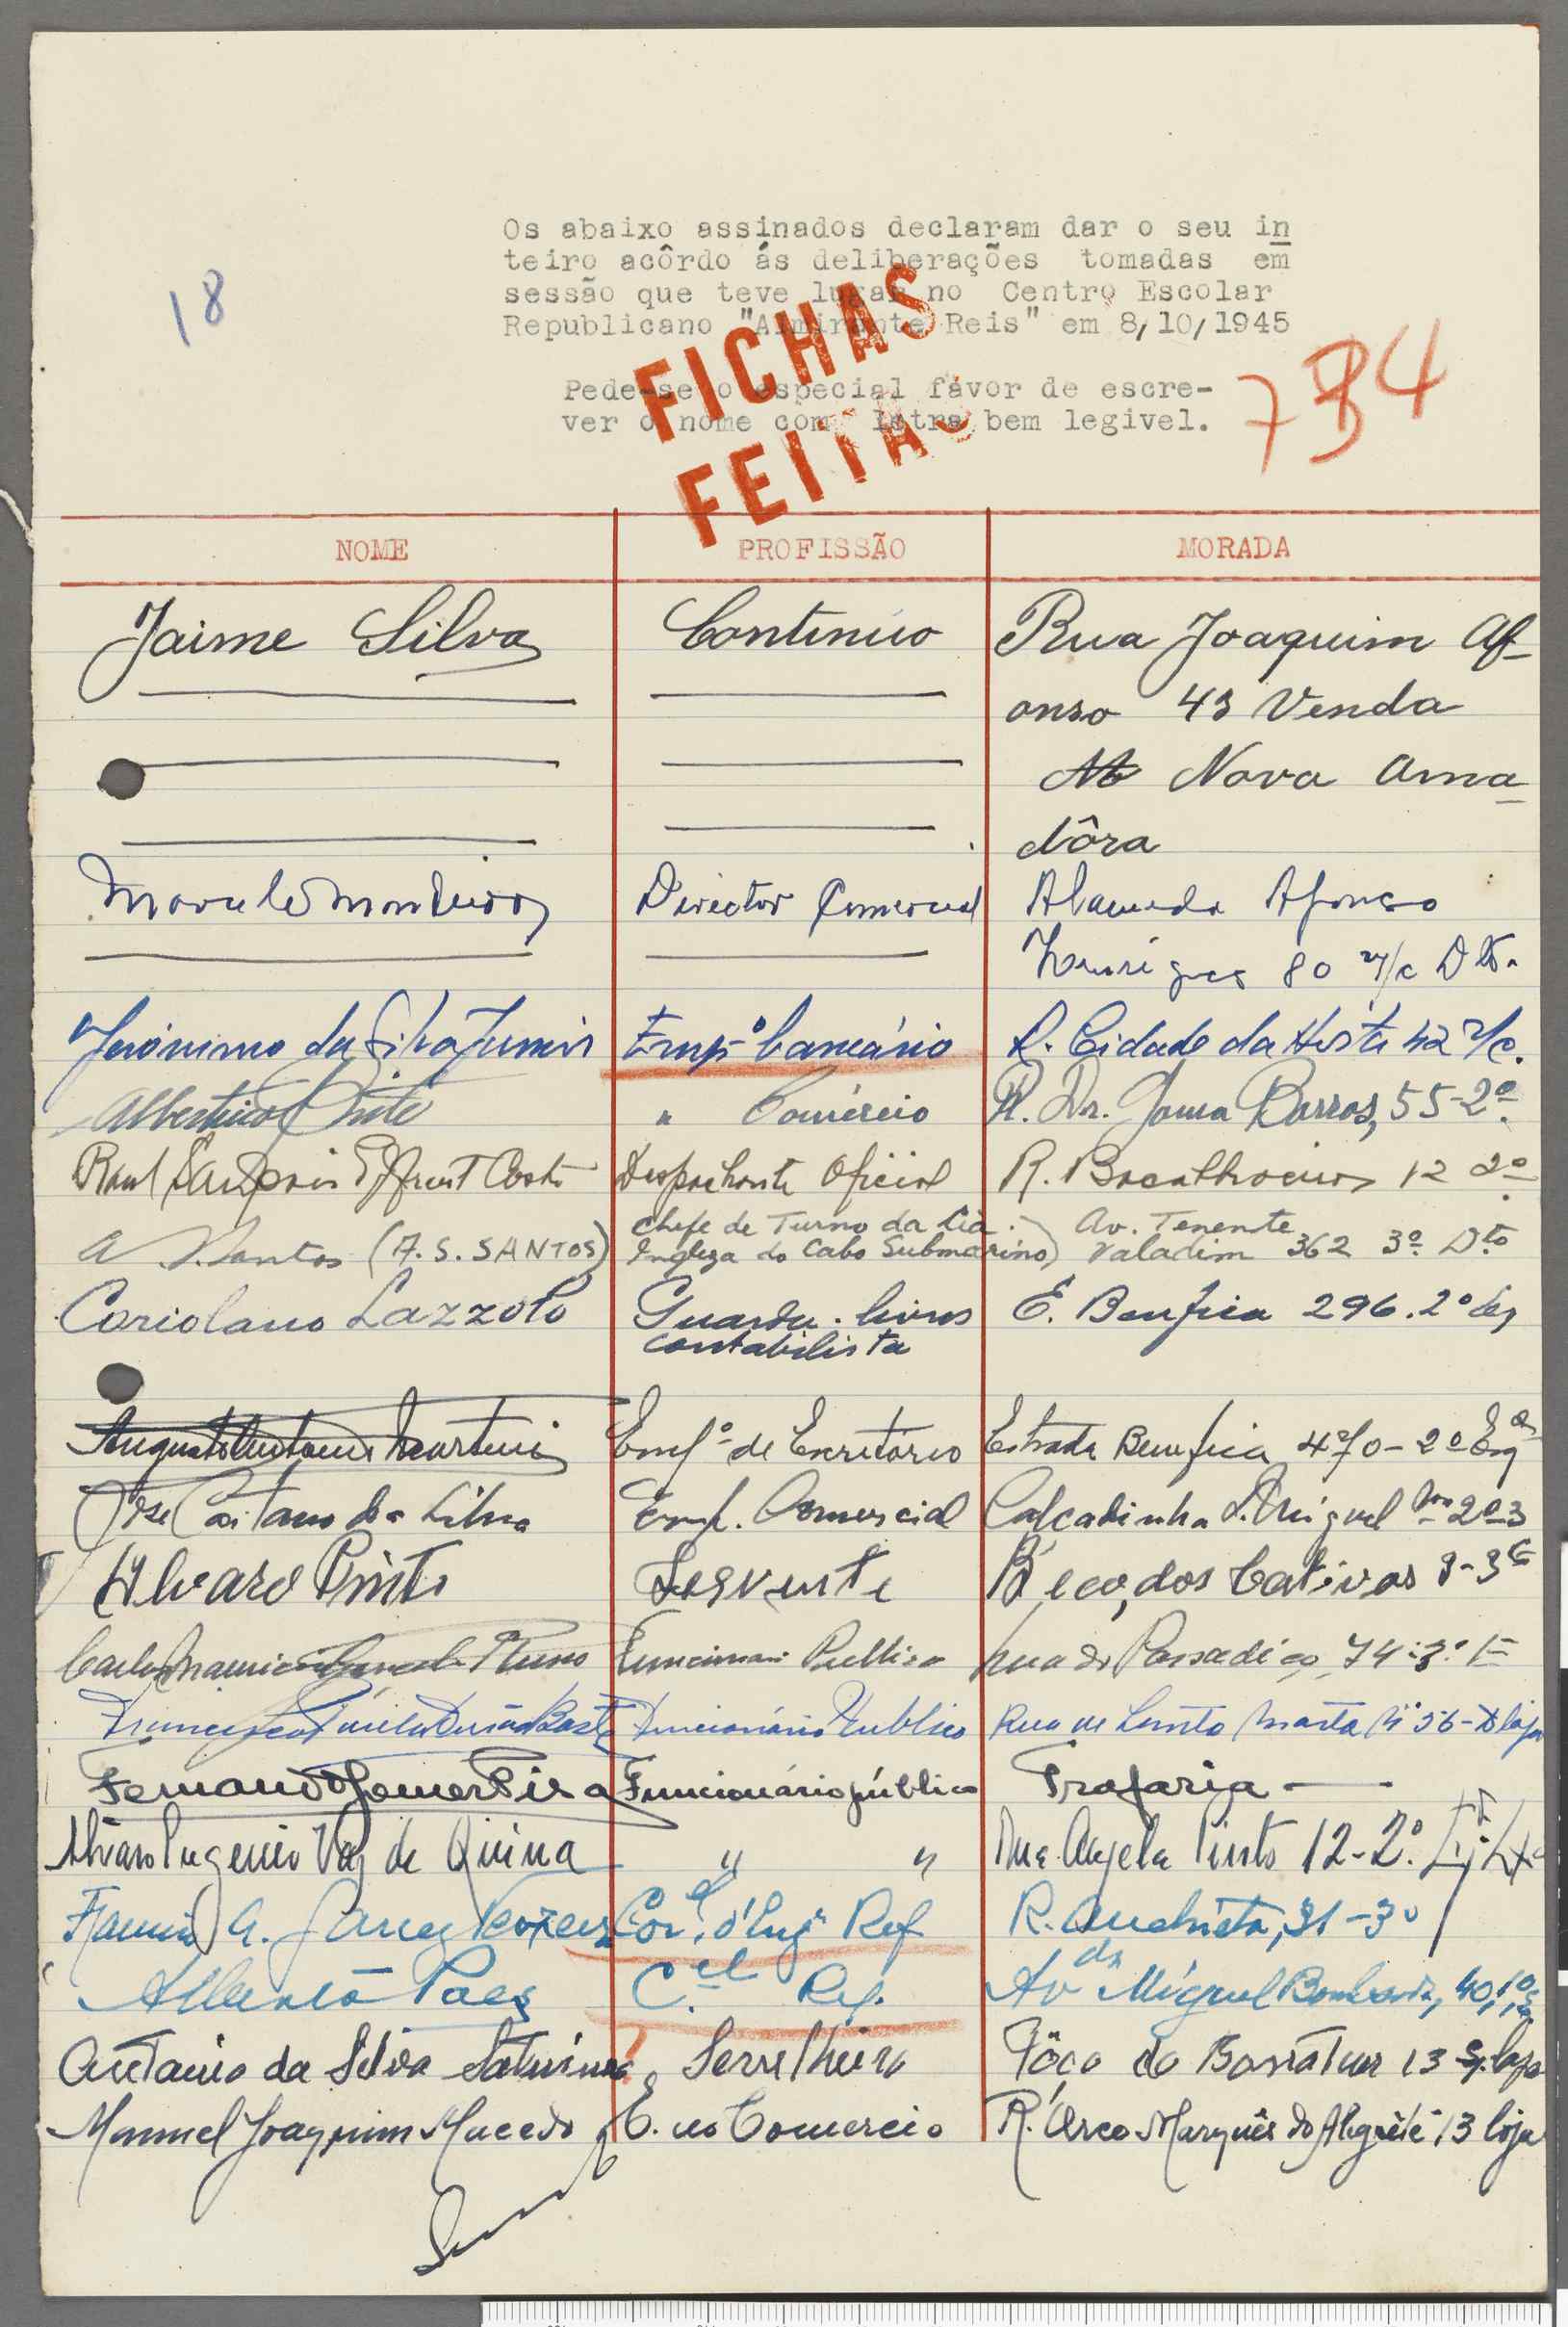 18
Os abaixo assinados declaram dar o seu in
teiro acôrdo ás deliberações tomadas em
sessão que teve lugar no Centro Escolar
Republicano "Almirante Reis" em 8/10/1945
Pede-se o especial fávor de escre-
ver o nome com letra bem legivel.
FICHAS
FEITAS
734
NOME PROFISSÃO MORADA
Jaime Silva Continúo Rua Joaquim Af-
onso 43 Venda
Nova Ama
dôra
Director Comercial Alameda Afonso
Henriques 80 r/c Dto.
Jerónimo da Silva Junior Empº bancário R. Cidade da Horta 42 r/c.
Albertino " Comércio R. Dr. Barros, 55-2º
Raul Costa Despachante Oficial R. Bacalhoeiros 12 2º
A. S. Santos (A. S. SANTOS) Chefe de Turno da Cia. Av. Tenente
Ingleza do Cabo Submarino) Valadim 362 3º Dto
Coriolano Lazzolo Guarda-livros E. Benfica 296. 2º
contabilista
Augusto Martins Empº de Escritório Estrada Benfica 470-2º Esqº
José Caitano da Silva Emp. Comercial Calcadinha S. Miguel Nº 2º 3
Alvaro Pinto Servente Béco, dos Cativos
Carlos Funcionari Publico Rua do Passadiço, 74-3º
Francisco Funcionário Publico Rua de Santa Marta Nº 56-D loja
Fernando Gomes Funcionário público Trafaria
Alvaro Eugenio Vaz de Quina " " Rua Angela Pinto 12-2º
G. Garcez Corel d'Engª Ref R. Anchieta, 31-3º
Alberto Paes C.el Ref. Av da Miguel Bombarda, 40, 1º
Antonio da Silva Serrelheiro Pôço do Borratem 13 loja
Manuel Joaquim Macedo E. no Comercio R. Arco Marquês do Alegrête 13 loja